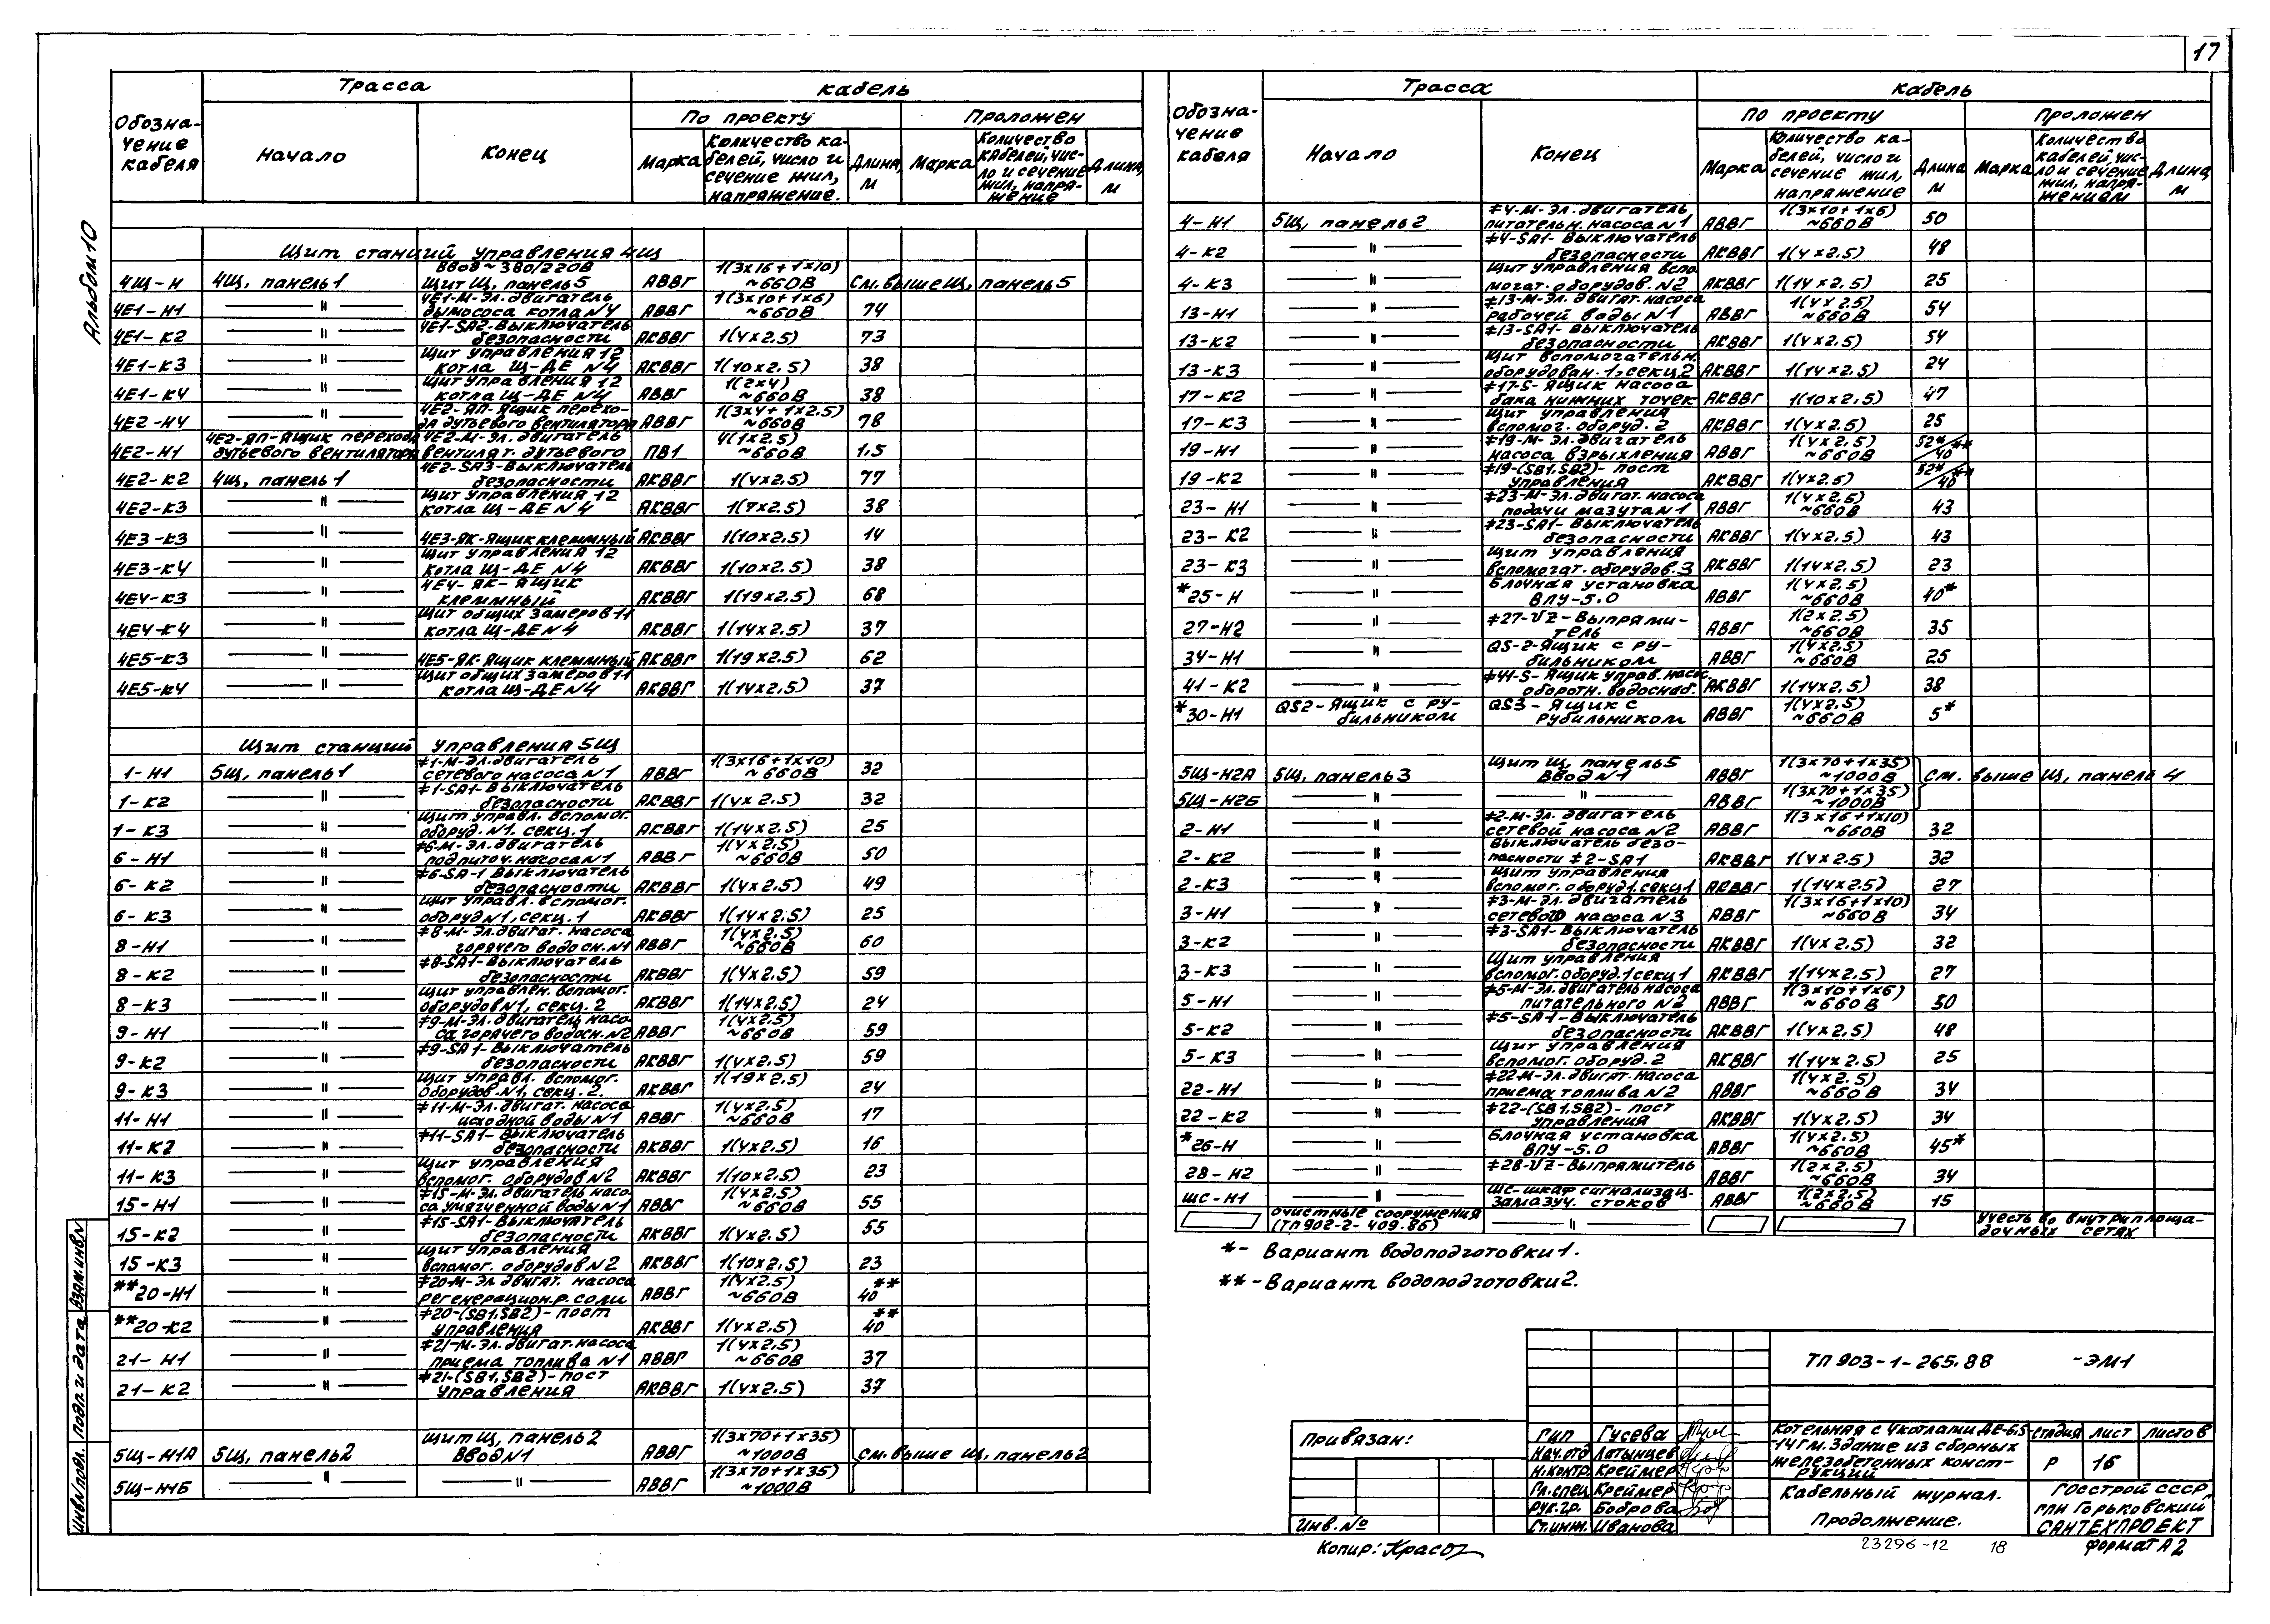 17
Альбом 10
Обозна-
чение
кабеля
Трасса
кабель
Начало
Конец
По проекту
Проложен
Марка
Количество ка-
белей, число и
сечение жил,
напряжение.
Длина, м
Марка
Количество
кабелей, чис-
ло и сечение
жил, напря-
жение
Длина, м
Щит станций управления 4Щ
4Щ-Н 4Щ, панель 1 Ввод ~380/220В Щит Щ, панель 5 АВВГ 1(3х16+1х10) ~660В См. выше Щ, панель 5
4Е1-Н1 〃 4Е1-М-Эл. двигатель дымососа котла N4 АВВГ 1(3х10+1х6) ~660В 74
4Е1-К2 〃 4Е1-SA2-Выключатель безопасности АКВВГ 1(4х2.5) 73
4Е1-К3 〃 Щит управления 12 котла Щ-ДЕ N4 АКВВГ 1(10х2.5) 38
4Е1-К4 〃 Щит управления 12 котла Щ-ДЕ N4 АВВГ 1(2х4) ~660В 38
4Е2-Н4 〃 4Е2-ЯП-Ящик перехо-да дутьевого вентилятора АВВГ 1(3х4+1х2.5) ~660В 78
4Е2-Н1 4Е2-ЯП-Ящик перехода дутьевого вентилятора 4Е2-М-Эл. двигатель вентилят. дутьевого ПВ1 4(1х2.5) ~660В 1.5
4Е2-К2 4Щ, панель 1 4Е2-SA3-Выключатель безопасности АКВВГ 1(4х2.5) 77
4Е2-К3 〃 Щит управления 12 котла Щ-ДЕ N4 АКВВГ 1(7х2.5) 38
4Е3-К3 〃 4Е3-ЯК-Ящик клеммный АКВВГ 1(10х2.5) 14
4Е3-К4 〃 Щит управления 12 котла Щ-ДЕ N4 АКВВГ 1(10х2.5) 38
4Е4-К3 〃 4Е4-ЯК-Ящик клеммный АКВВГ 1(19х2.5) 68
4Е4-К4 〃 Щит общих замеров 11 котла Щ-ДЕ N4 АКВВГ 1(14х2.5) 37
4Е5-К3 〃 4Е5-ЯК-Ящик клеммный АКВВГ 1(19х2.5) 62
4Е5-К4 〃 Щит общих замеров 11 котла Щ-ДЕ N4 АКВВГ 1(14х2.5) 37
Щит станций управления 5Щ
1-Н1 5Щ, панель 1 #1-М-Эл. двигатель сетевого насоса N1 АВВГ 1(3х16+1х10) ~660В 32
1-К2 〃 #1-SA1-Выключатель безопасности АКВВГ 1(4х2.5) 32
1-К3 〃 Щит управл. вспомог. оборуд. N1. секц. 1 АКВВГ 1(14х2.5) 25
6-Н1 〃 #6-М-Эл. двигатель подпиточ. насоса N1 АВВГ 1(4х2.5) ~660В 50
6-К2 〃 #6-SA-1 Выключатель безопасности АКВВГ 1(4х2.5) 49
6-К3 〃 Щит управл. вспомог. оборуд N1, секц. 1 АКВВГ 1(14х2.5) 25
8-Н1 〃 #8-М-Эл. двигат. насоса горячего водосн. N1 АВВГ 1(4х2.5) ~660В 60
8-К2 〃 #8-SA1-Выключатель безопасности АКВВГ 1(4х2.5) 59
8-К3 〃 Щит управлен. вспомог. оборудов N1, секц. 2 АКВВГ 1(14х2.5) 24
9-Н1 〃 #9-М-Эл. двигатель насо-са горячего водосн. N2 АВВГ 1(4х2.5) ~660В 59
9-К2 〃 #9-SA1-Выключатель безопасности АКВВГ 1(4х2.5) 59
9-К3 〃 Щит управл. вспомог. оборудов. N1, секц. 2. АКВВГ 1(19х2.5) 24
11-Н1 〃 #11-М-Эл. двигат. насоса исходной воды N1 АВВГ 1(4х2.5) ~660В 17
11-К2 〃 #11-SA1-Выключатель безопасности АКВВГ 1(4х2.5) 16
11-К3 〃 Щит управления вспомог. оборудов N2 АКВВГ 1(10х2.5) 23
15-Н1 〃 #15-М-Эл. двигатель насо-са умягченной воды N1 АВВГ 1(4х2.5) ~660В 55
15-К2 〃 #15-SA1-Выключатель безопасности АКВВГ 1(4х2.5) 55
15-К3 〃 Щит управления вспомог. оборудов N2 АКВВГ 1(10х2.5) 23
**20-Н1 〃 #20-М-Эл двигат. насоса регенерацион. р. соли АВВГ 1(4х2.5) ~660В 40**
**20-К2 〃 #20-(SB1,SB2)-пост управления АКВВГ 1(4х2.5) 40**
21-Н1 〃 #21-М-Эл. двигат. насоса приема топлива N1 АВВГ 1(4х2.5) ~660В 37
21-К2 〃 #21-(SB1,SB2)-пост управления АКВВГ 1(4х2.5) 37
5Щ-Н1А 5Щ, панель 2 Щит Щ, панель 2 Ввод N1 АВВГ 1(3х70+1х35) ~1000В См. выше Щ, панель 2
5Щ-Н1Б 〃 〃 АВВГ 1(3х70+1х35) ~1000В
Обозна-
чение
кабеля
Трасса
кабель
Начало
Конец
По проекту
Проложен
Марка
Количество ка-
белей, число и
сечение жил,
напряжение
Длина м
Марка
Количество
кабелей, чис-
ло и сечение
жил, напря-
жением
Длина, м
4-Н1 5Щ, панель 2 #4-М-Эл. двигатель питательн. насоса N1 АВВГ 1(3х10+1х6) ~660В 50
4-К2 〃 #4-SA1-Выключатель безопасности АКВВГ 1(4х2.5) 48
4-К3 〃 Щит управления вспо-могат. оборудов. N2 АКВВГ 1(14х2.5) 25
13-Н1 〃 #13-М-Эл. двигат. насоса рабочей воды N1 АВВГ 1(4х2.5) ~660В 54
13-К2 〃 #13-SA1-Выключатель безопасности АКВВГ 1(4х2.5) 54
13-К3 〃 Щит вспомогательн. оборудован. 1, секц 2 АКВВГ 1(14х2.5) 24
17-К2 〃 #17-S-Ящик насоса бака нижних точек АКВВГ 1(10х2.5) 47
17-К3 〃 Щит управления вспомог. оборуд. 2 АКВВГ 1(4х2.5) 25
19-Н1 〃 #19-М-Эл. двигатель насоса взрыхления АВВГ 1(4х2.5) ~660В 52*/40**
19-К2 〃 #19-(SB1,SB2)-пост управления АКВВГ 1(4х2.5) 52*/40**
23-Н1 〃 #23-М-Эл. двигат. насоса подачи мазута N1 АВВГ 1(4х2.5) ~660В 43
23-К2 〃 #23-SA1-Выключатель безопасности АКВВГ 1(4х2.5) 43
23-К3 〃 Щит управления вспомогат. оборудов. 3 АКВВГ 1(14х2.5) 23
*25-Н 〃 Блочная установка ВПУ-5.0 АВВГ 1(4х2.5) ~660В 40*
27-Н2 〃 #27-VZ-Выпрями-тель АВВГ 1(2х2.5) ~660В 35
34-Н1 〃 QS-2-Ящик с ру-бильником АВВГ 1(4х2.5) ~660В 25
41-К2 〃 #41-S-Ящик управ. насос. оборотн. водоснаб. АКВВГ 1(14х2.5) 38
*30-Н1 QS2-Ящик с ру-бильником QS3-Ящик с рубильником АВВГ 1(4х2.5) ~660В 5*
5Щ-Н2А 5Щ, панель 3 Щит Щ, панель 5 Ввод N1 АВВГ 1(3х70+1х35) ~1000В См. выше Щ, панель 4
5Щ-Н2Б 〃 〃 АВВГ 1(3х70+1х35) ~1000В
2-Н1 〃 #2-М-Эл. двигатель сетевой насоса N2 АВВГ 1(3х16+1х10) ~660В 32
2-К2 〃 Выключатель безо-пасности #2-SA1 АКВВГ 1(4х2.5) 32
2-К3 〃 Щит управления вспомог. оборуд 1. секц 1 АКВВГ 1(14х2.5) 27
3-Н1 〃 #3-М-Эл. двигатель сетевого насоса N3 АВВГ 1(3х16+1х10) ~660В 34
3-К2 〃 #3-SA1-Выключатель безопасности АКВВГ 1(4х2.5) 32
3-К3 〃 Щит управления вспомог. оборуд. 1 секц 1 АКВВГ 1(14х2.5) 27
5-Н1 〃 #5-М-Эл. двигатель насоса питательного N2 АВВГ 1(3х10+1х6) ~660В 50
5-К2 〃 #5-SA1-Выключатель безопасности АКВВГ 1(4х2.5) 48
5-К3 〃 Щит управления вспомог. оборуд. 2 АКВВГ 1(14х2.5) 25
22-Н1 〃 #22-М-Эл. двигат. насоса приема топлива N2 АВВГ 1(4х2.5) ~660В 34
22-К2 〃 #22-(SB1,SB2)-пост управления АКВВГ 1(4х2.5) 34
*26-Н 〃 Блочная установка ВПУ-5.0 АВВГ 1(4х2.5) ~660В 45*
28-Н2 〃 #28-VZ-Выпрямитель АВВГ 1(2х2.5) ~660В 34
ШС-Н1 〃 ШС-шкаф сигнализац. замазуч. стоков АВВГ 1(2х2.5) ~660В 15
Очистные сооружения (ТП 902-2-409.86) 〃 Учесть во внутриплоща-дочных сетях
*- Вариант водоподготовки 1.
**- Вариант водоподготовки 2.
ТП 903-1-265.88 -ЭМ1
Привязан:
Инв. №
Гип Гусева
Нач. отд Латынцев
Н. контр. Креймер
Гл. спец Креймер
Рук. гр. Боброва
Ст. инж. Иванова
Котельная с 4 котлами ДЕ-6.5
-14ГМ. Здание из сборных
железобетонных конст-
рукций
Стадия Лист Листов
Р 16
Кабельный журнал.
Продолжение.
Госстрой СССР
ГПИ Горьковский
САНТЕХПРОЕКТ
Копир:
23296-12 18
формат А2
Инв. N подл. Подп. и дата Взам. инв. N